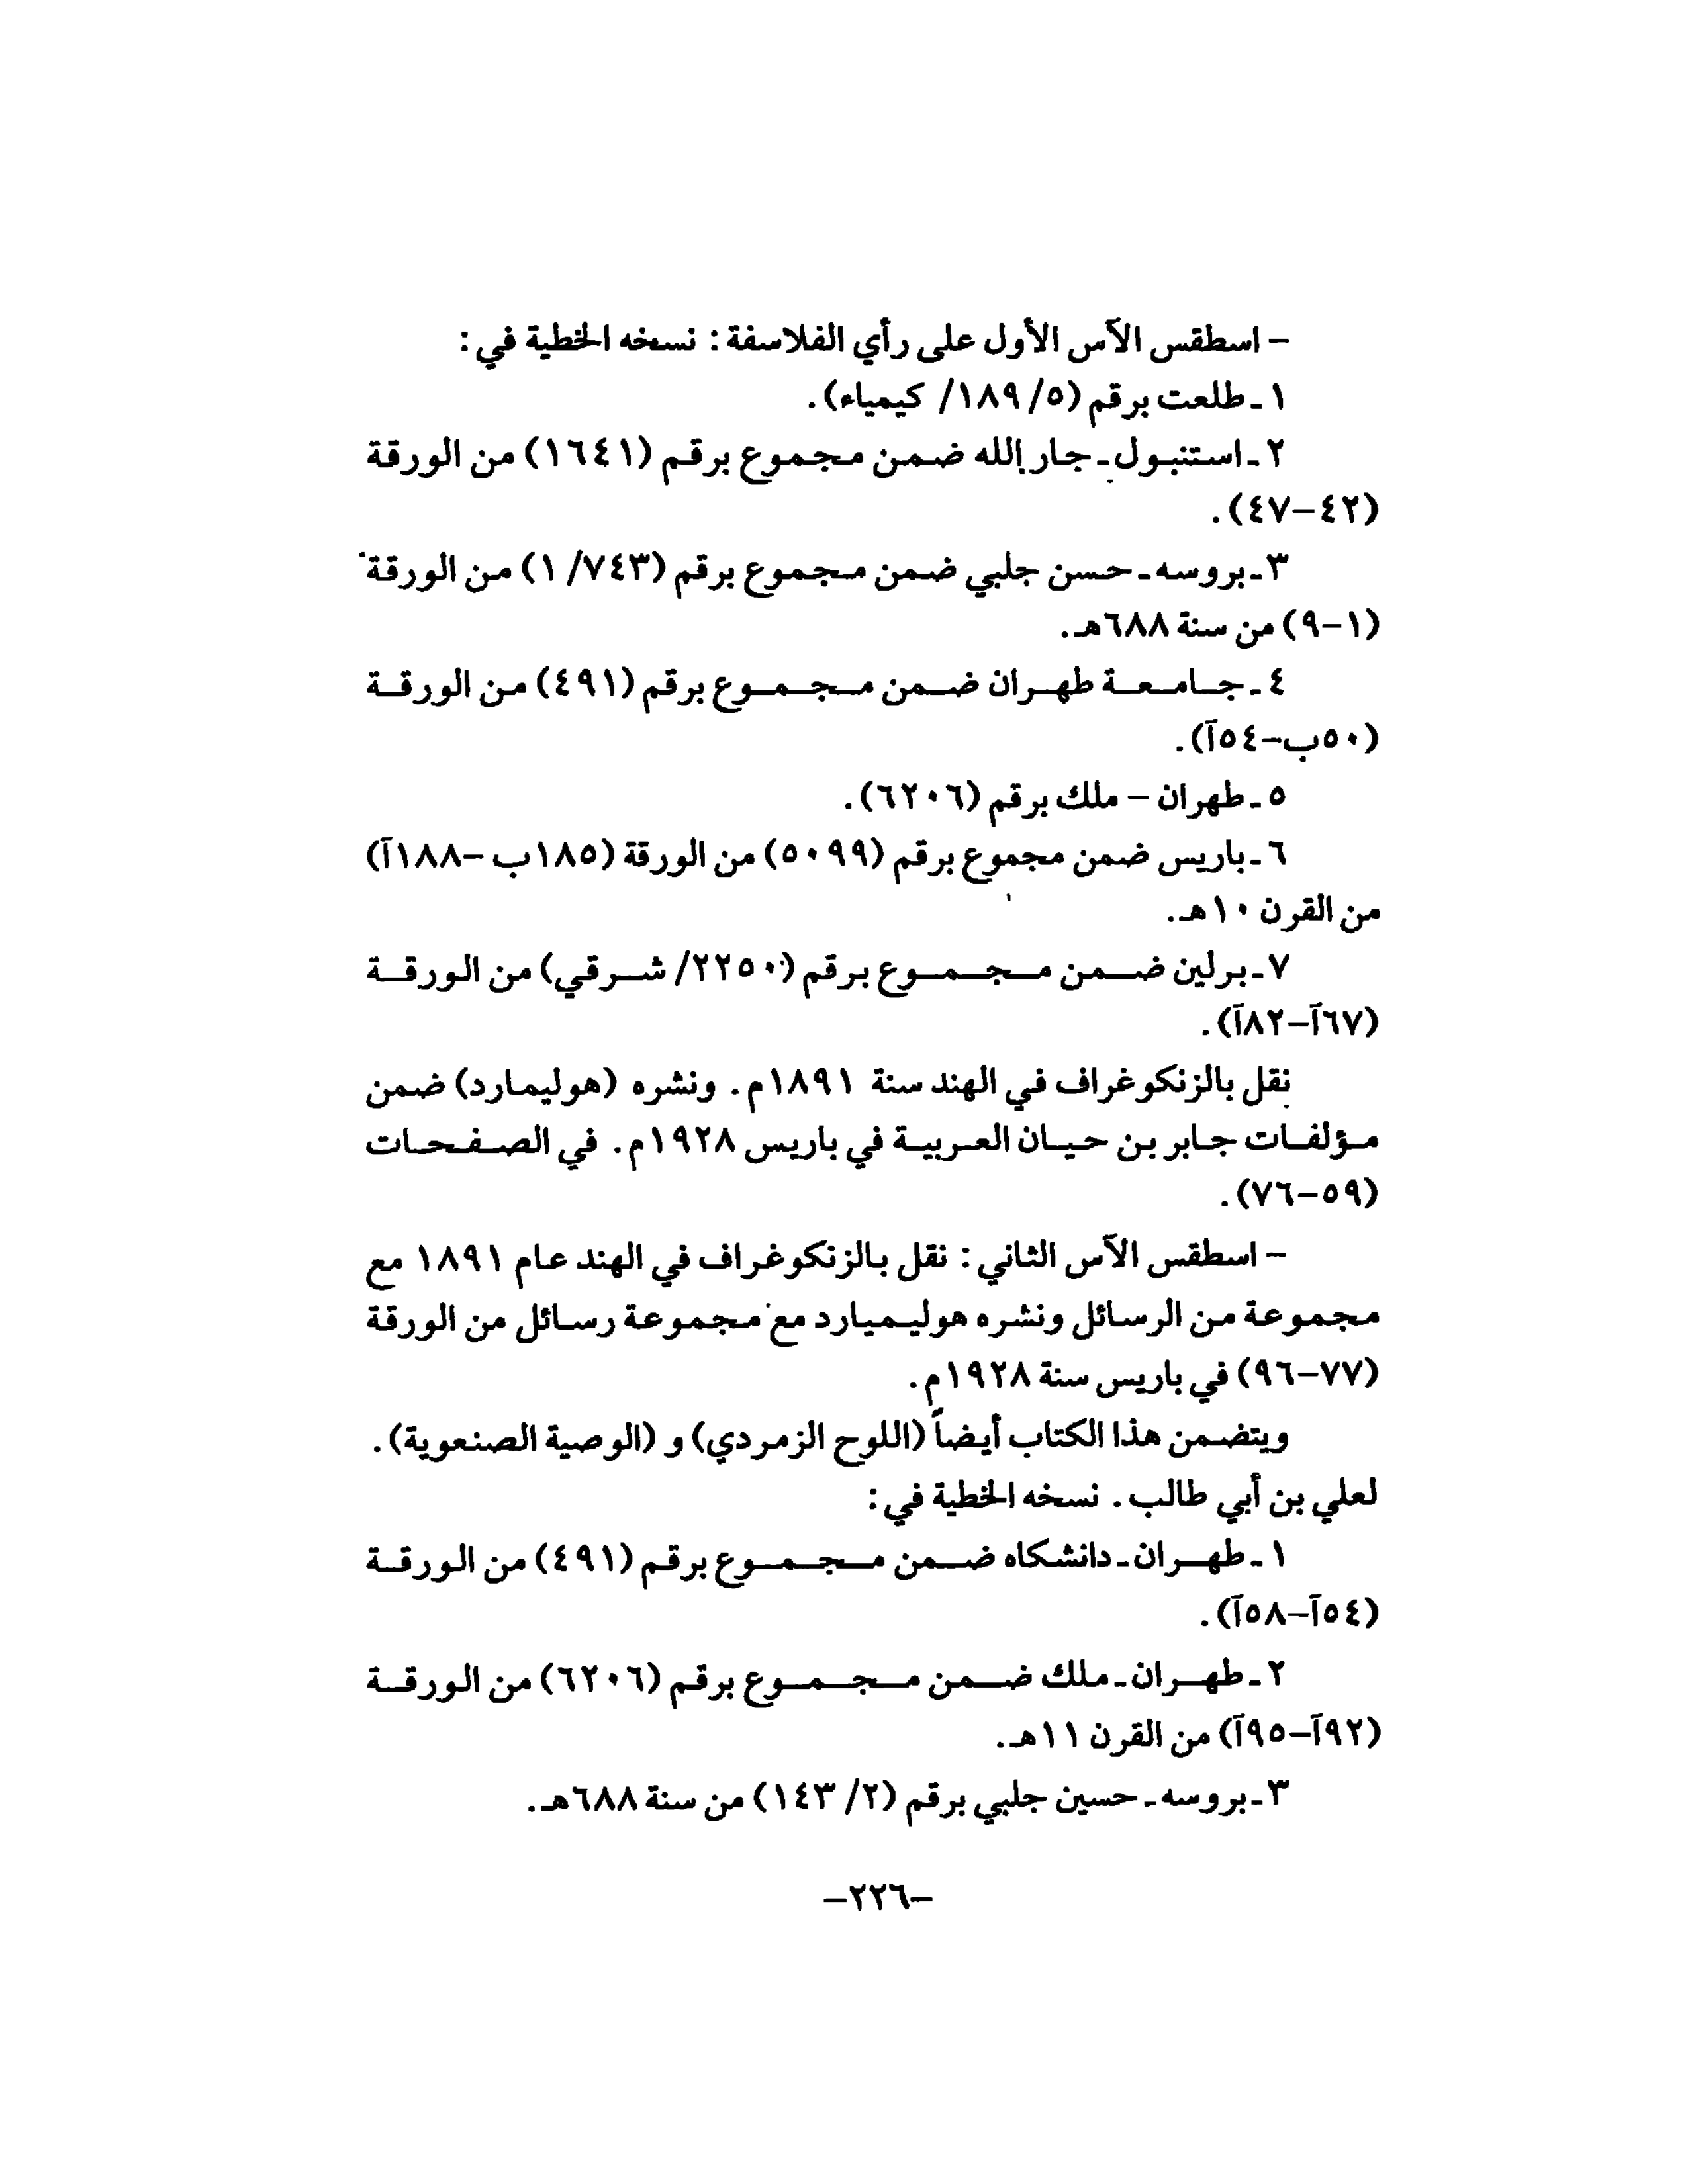 – اسطقس الآس الأول على رأي الفلاسفة : نسخه الخطية في :
١ ـ طلعت برقم (٥/ ١٨٩/ كيمياء) .
٢ ـ استنبول ـ جار الله ضمن مجموع برقم (١٦٤١) من الورقة
(٤٢–٤٧) .
٣ ـ بروسه ـ حسن جلبي ضمن مجموع برقم (٧٤٣/ ١) من الورقة
(١–٩) من سنة ٦٨٨هـ .
٤ ـ جامعة طهران ضمن مجموع برقم (٤٩١) من الورقة
(٥٠ب–٥٤آ) .
٥ ـ طهران – ملك برقم (٦٢٠٦) .
٦ ـ باريس ضمن مجموع برقم (٥٠٩٩) من الورقة (١٨٥ب –١٨٨آ)
من القرن ١٠هـ .
٧ ـ برلين ضمن مجموع برقم (٢٢٥٠/ شرقي) من الورقة
(٦٧آ–٨٢آ) .
نقل بالزنكوغراف في الهند سنة ١٨٩١م . ونشره (هوليمارد) ضمن
مؤلفات جابر بن حيان العربية في باريس ١٩٢٨م . في الصفحات
(٥٩–٧٦) .
– اسطقس الآس الثاني : نقل بالزنكوغراف في الهند عام ١٨٩١ مع
مجموعة من الرسائل ونشره هوليميارد مع مجموعة رسائل من الورقة
(٧٧–٩٦) في باريس سنة ١٩٢٨م .
ويتضمن هذا الكتاب أيضاً (اللوح الزمردي) و (الوصية الصنعوية) .
لعلي بن أبي طالب . نسخه الخطية في :
١ ـ طهران ـ دانشكاه ضمن مجموع برقم (٤٩١) من الورقة
(٥٤آ–٥٨آ) .
٢ ـ طهران ـ ملك ضمن مجموع برقم (٦٢٠٦) من الورقة
(٩٢آ–٩٥آ) من القرن ١١هـ .
٣ ـ بروسه ـ حسين جلبي برقم (٢/ ١٤٣) من سنة ٦٨٨هـ .
–٢٢٦–